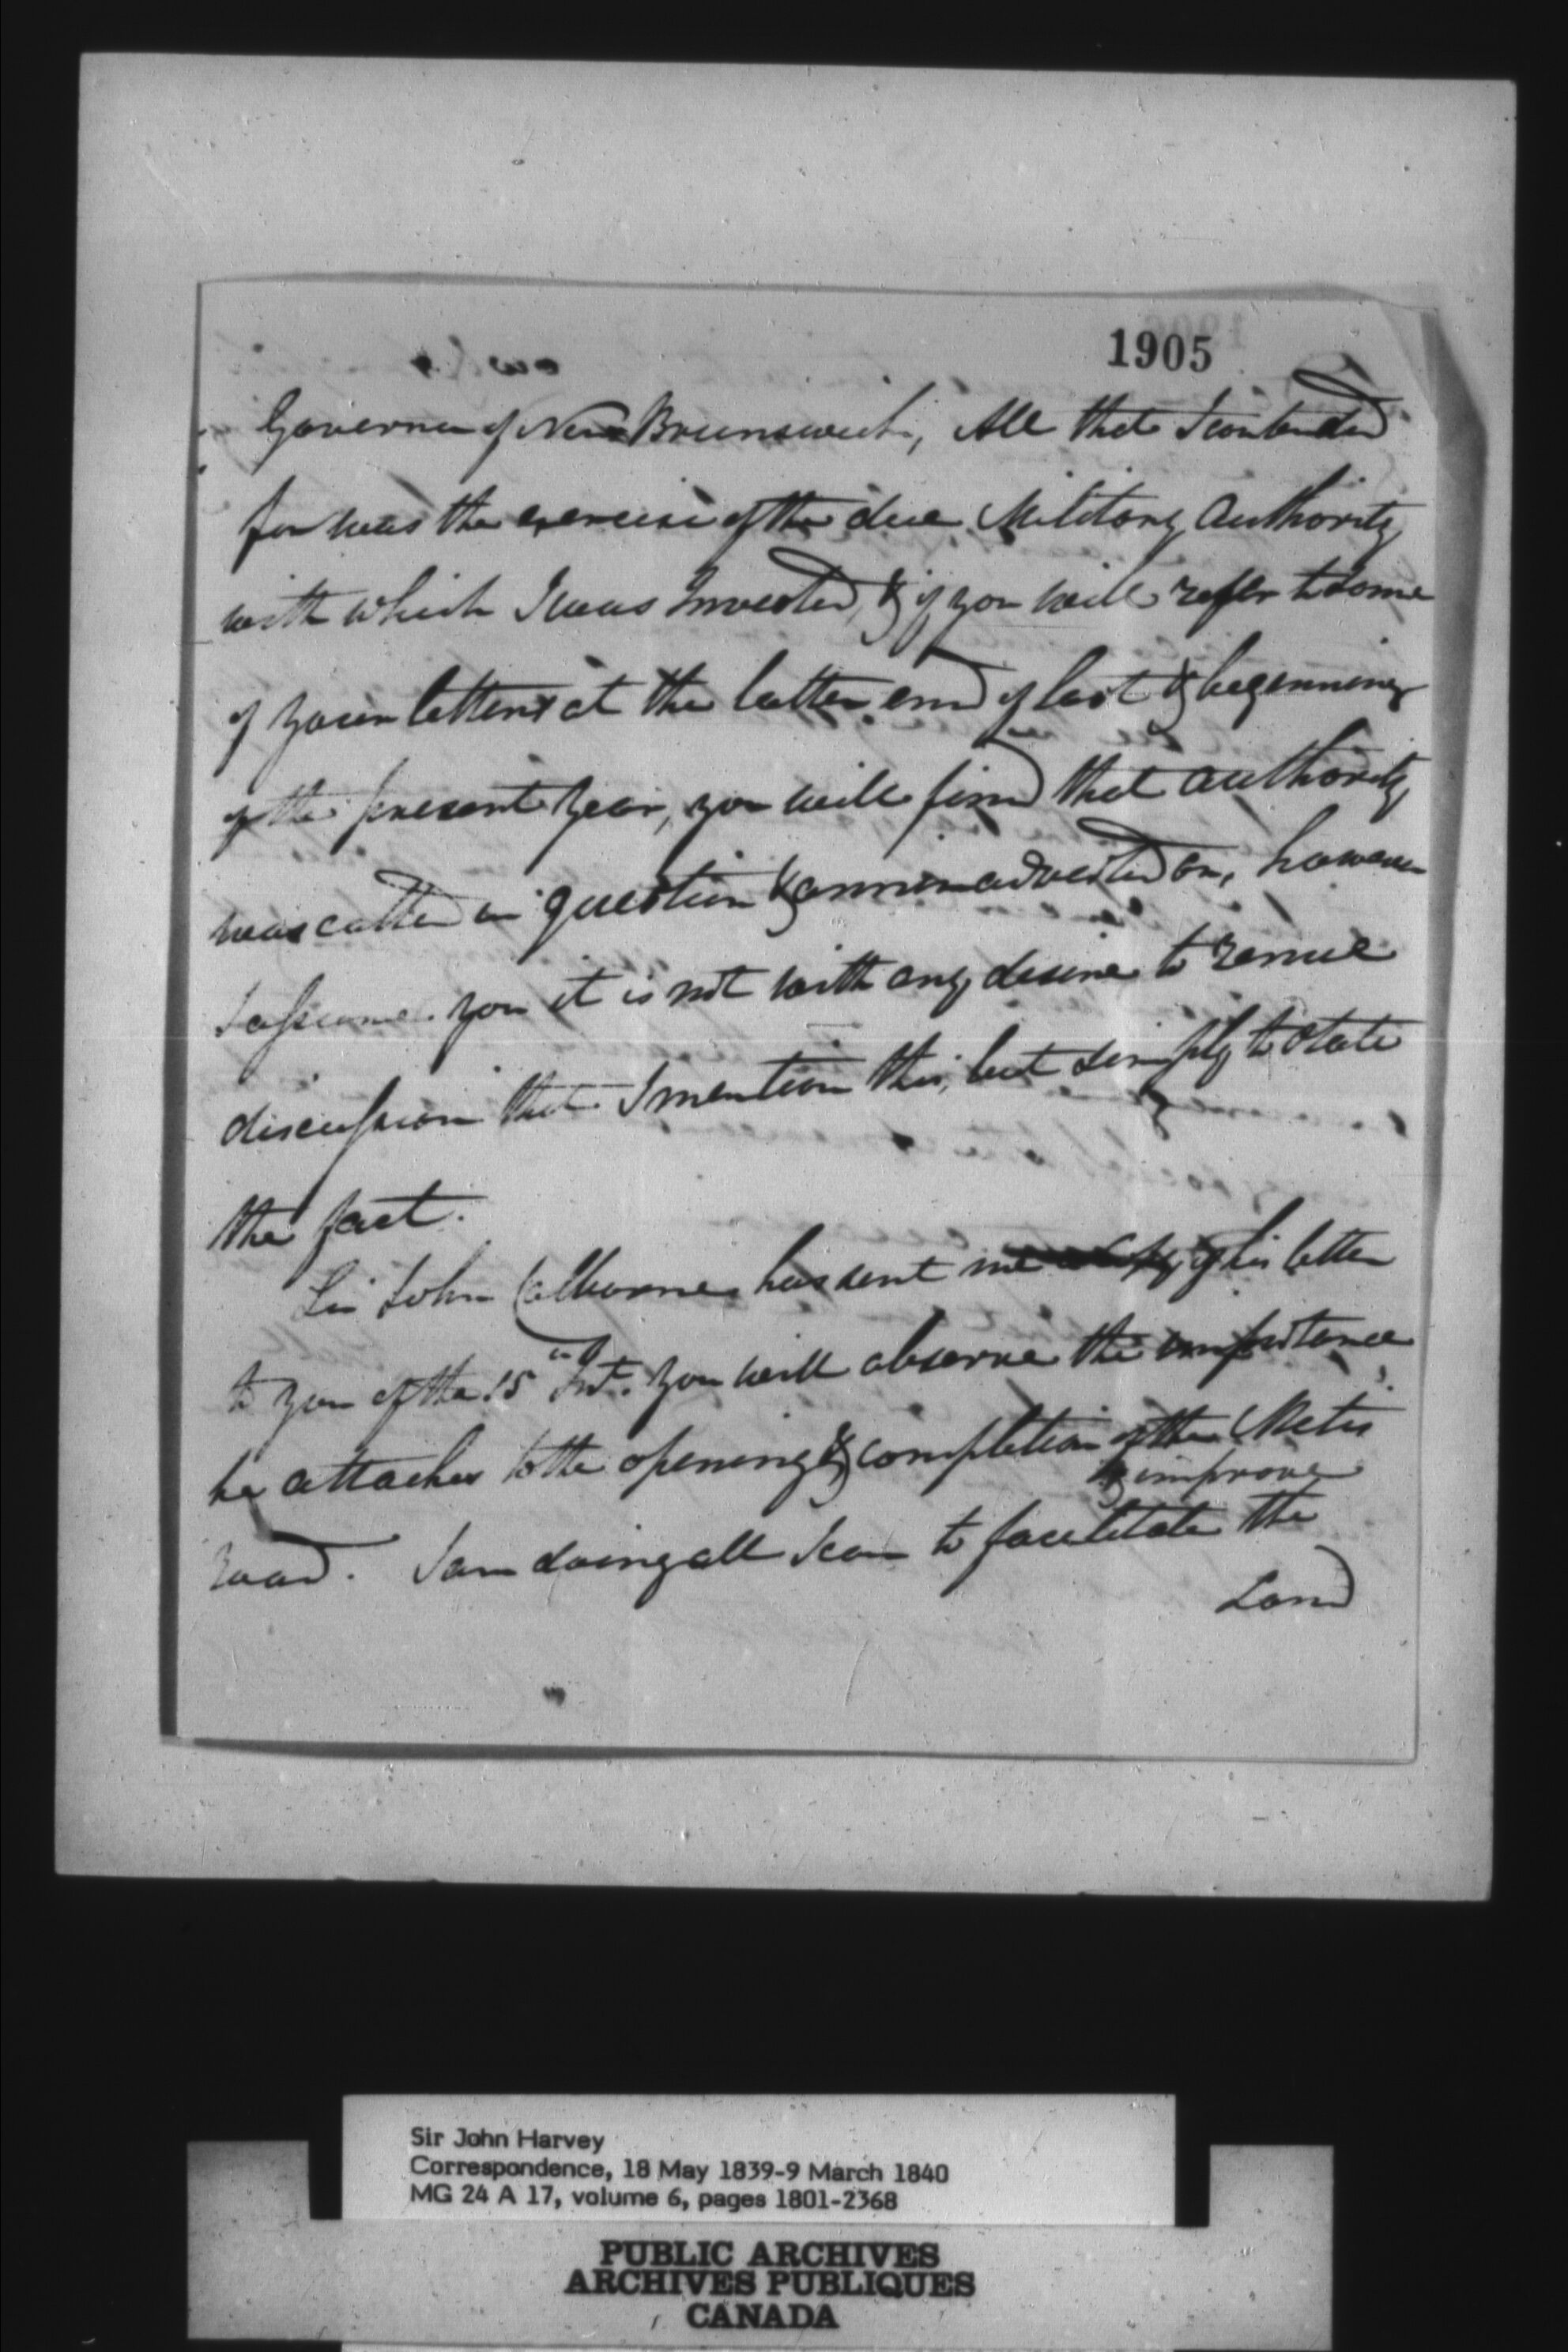 1905
Governor of New Brunswick, All that I contended
for was the exercise of the due Military Authority
with which I was Invested, & if you will refer to some
of your letters at the latter end of last & beginning
of the present year, you will find that authority
was called in question & animadverted on, however
I assure you it is not with any desire to renue
discussion that I mention this, but simply to state
the fact.
Sir John Colborne has sent me a copy of his letter
to you of the 15th Inst. you will observe the importance
he attaches to the opening & completion of the Metis
& improve
road. I am doing all I can to facilitate the
Land
Sir John Harvey
Correspondence, 18 May 1839-9 March 1840
MG 24 A 17, volume 6, pages 1801-2368
PUBLIC ARCHIVES
ARCHIVES PUBLIQUES
CANADA